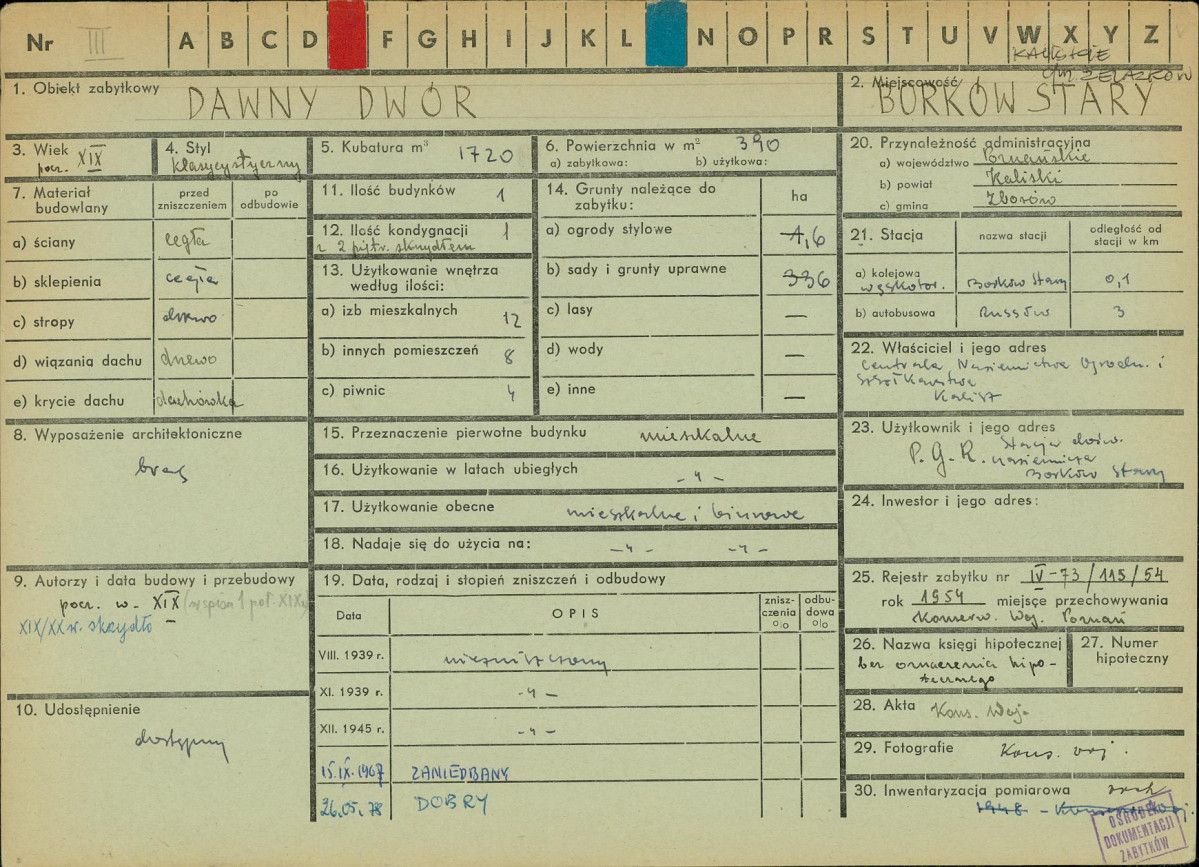 Nr III A B C D F G H I J K L N O P R S T U V W X Y Z
KALISKIE
gm ŻELAZKÓW
1. Obiekt zabytkowy DAWNY DWÓR
2. Miejscowość BORKÓW STARY
3. Wiek
pocz. XIX
4. Styl
klasycystyczny
5. Kubatura m³ 1720
6. Powierzchnia w m² 390
a) zabytkowa: b) użytkowa:
7. Materiał budowlany
przed zniszczeniem
po odbudowie
a) ściany cegła
b) sklepienia cegła
c) stropy drewno
d) wiązania dachu drzewo
e) krycie dachu dachówka
11. Ilość budynków 1
12. Ilość kondygnacji 1
z 2 piętr. skrzydłem
13. Użytkowanie wnętrza
według ilości:
a) izb mieszkalnych 12
b) innych pomieszczeń 8
c) piwnic 4
14. Grunty należące do
zabytku:
ha
a) ogrody stylowe 1,6
b) sady i grunty uprawne 336
c) lasy —
d) wody —
e) inne —
8. Wyposażenie architektoniczne
brak
9. Autorzy i data budowy i przebudowy
pocz. w. XIX (wpisa 1 poł. XIX)
XIX/XX w. skrzydło
10. Udostępnienie
dostępny
15. Przeznaczenie pierwotne budynku mieszkalne
16. Użytkowanie w latach ubiegłych - " -
17. Użytkowanie obecne mieszkalne i biurowe
18. Nadaje się do użycia na: - " - - " -
19. Data, rodzaj i stopień zniszczeń i odbudowy
Data
OPIS
znisz-
czenia
%
odbu-
dowa
%
VIII. 1939 r. niezniszczony
XI. 1939 r. - " -
XII. 1945 r. - " -
15.IX.1967 ZANIEDBANY
26.05.78 DOBRY
20. Przynależność administracyjna
a) województwo Poznańskie
b) powiat Kaliski
c) gmina Zborów
21. Stacja
nazwa stacji
odległość od
stacji w km
a) kolejowa
wąskotor. Borków Stary 0,1
b) autobusowa Russów 3
22. Właściciel i jego adres
Centrala Nasiennictwa Ogrodn. i
Szkółkarstwa
Kalisz
23. Użytkownik i jego adres
P.G.R. Stacja dośw.
nasiennicza
Borków Stary
24. Inwestor i jego adres:
25. Rejestr zabytku nr IV-73/115/54
rok 1954 miejsce przechowywania
Konserw. Woj. Poznań
26. Nazwa księgi hipotecznej
bez oznaczenia hipo-
tecznego
27. Numer
hipoteczny
28. Akta Kons. Woj.
29. Fotografie Kons. woj.
30. Inwentaryzacja pomiarowa
1948 - Konserw. Woj.
OŚRODEK
DOKUMENTACJI
ZABYTKÓW